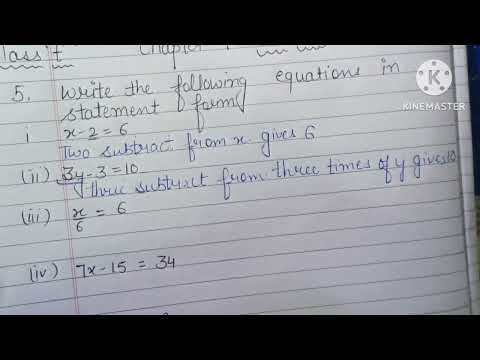 Class 7 Chapter
5. Write the following equations in
statement form
i x-2=6
Two subtract from x gives 6
(ii) 3y-3=10
Three subtract from three times of y gives 10
(iii) x/6 = 6
(iv) 7x-15 = 34
KINEMASTER